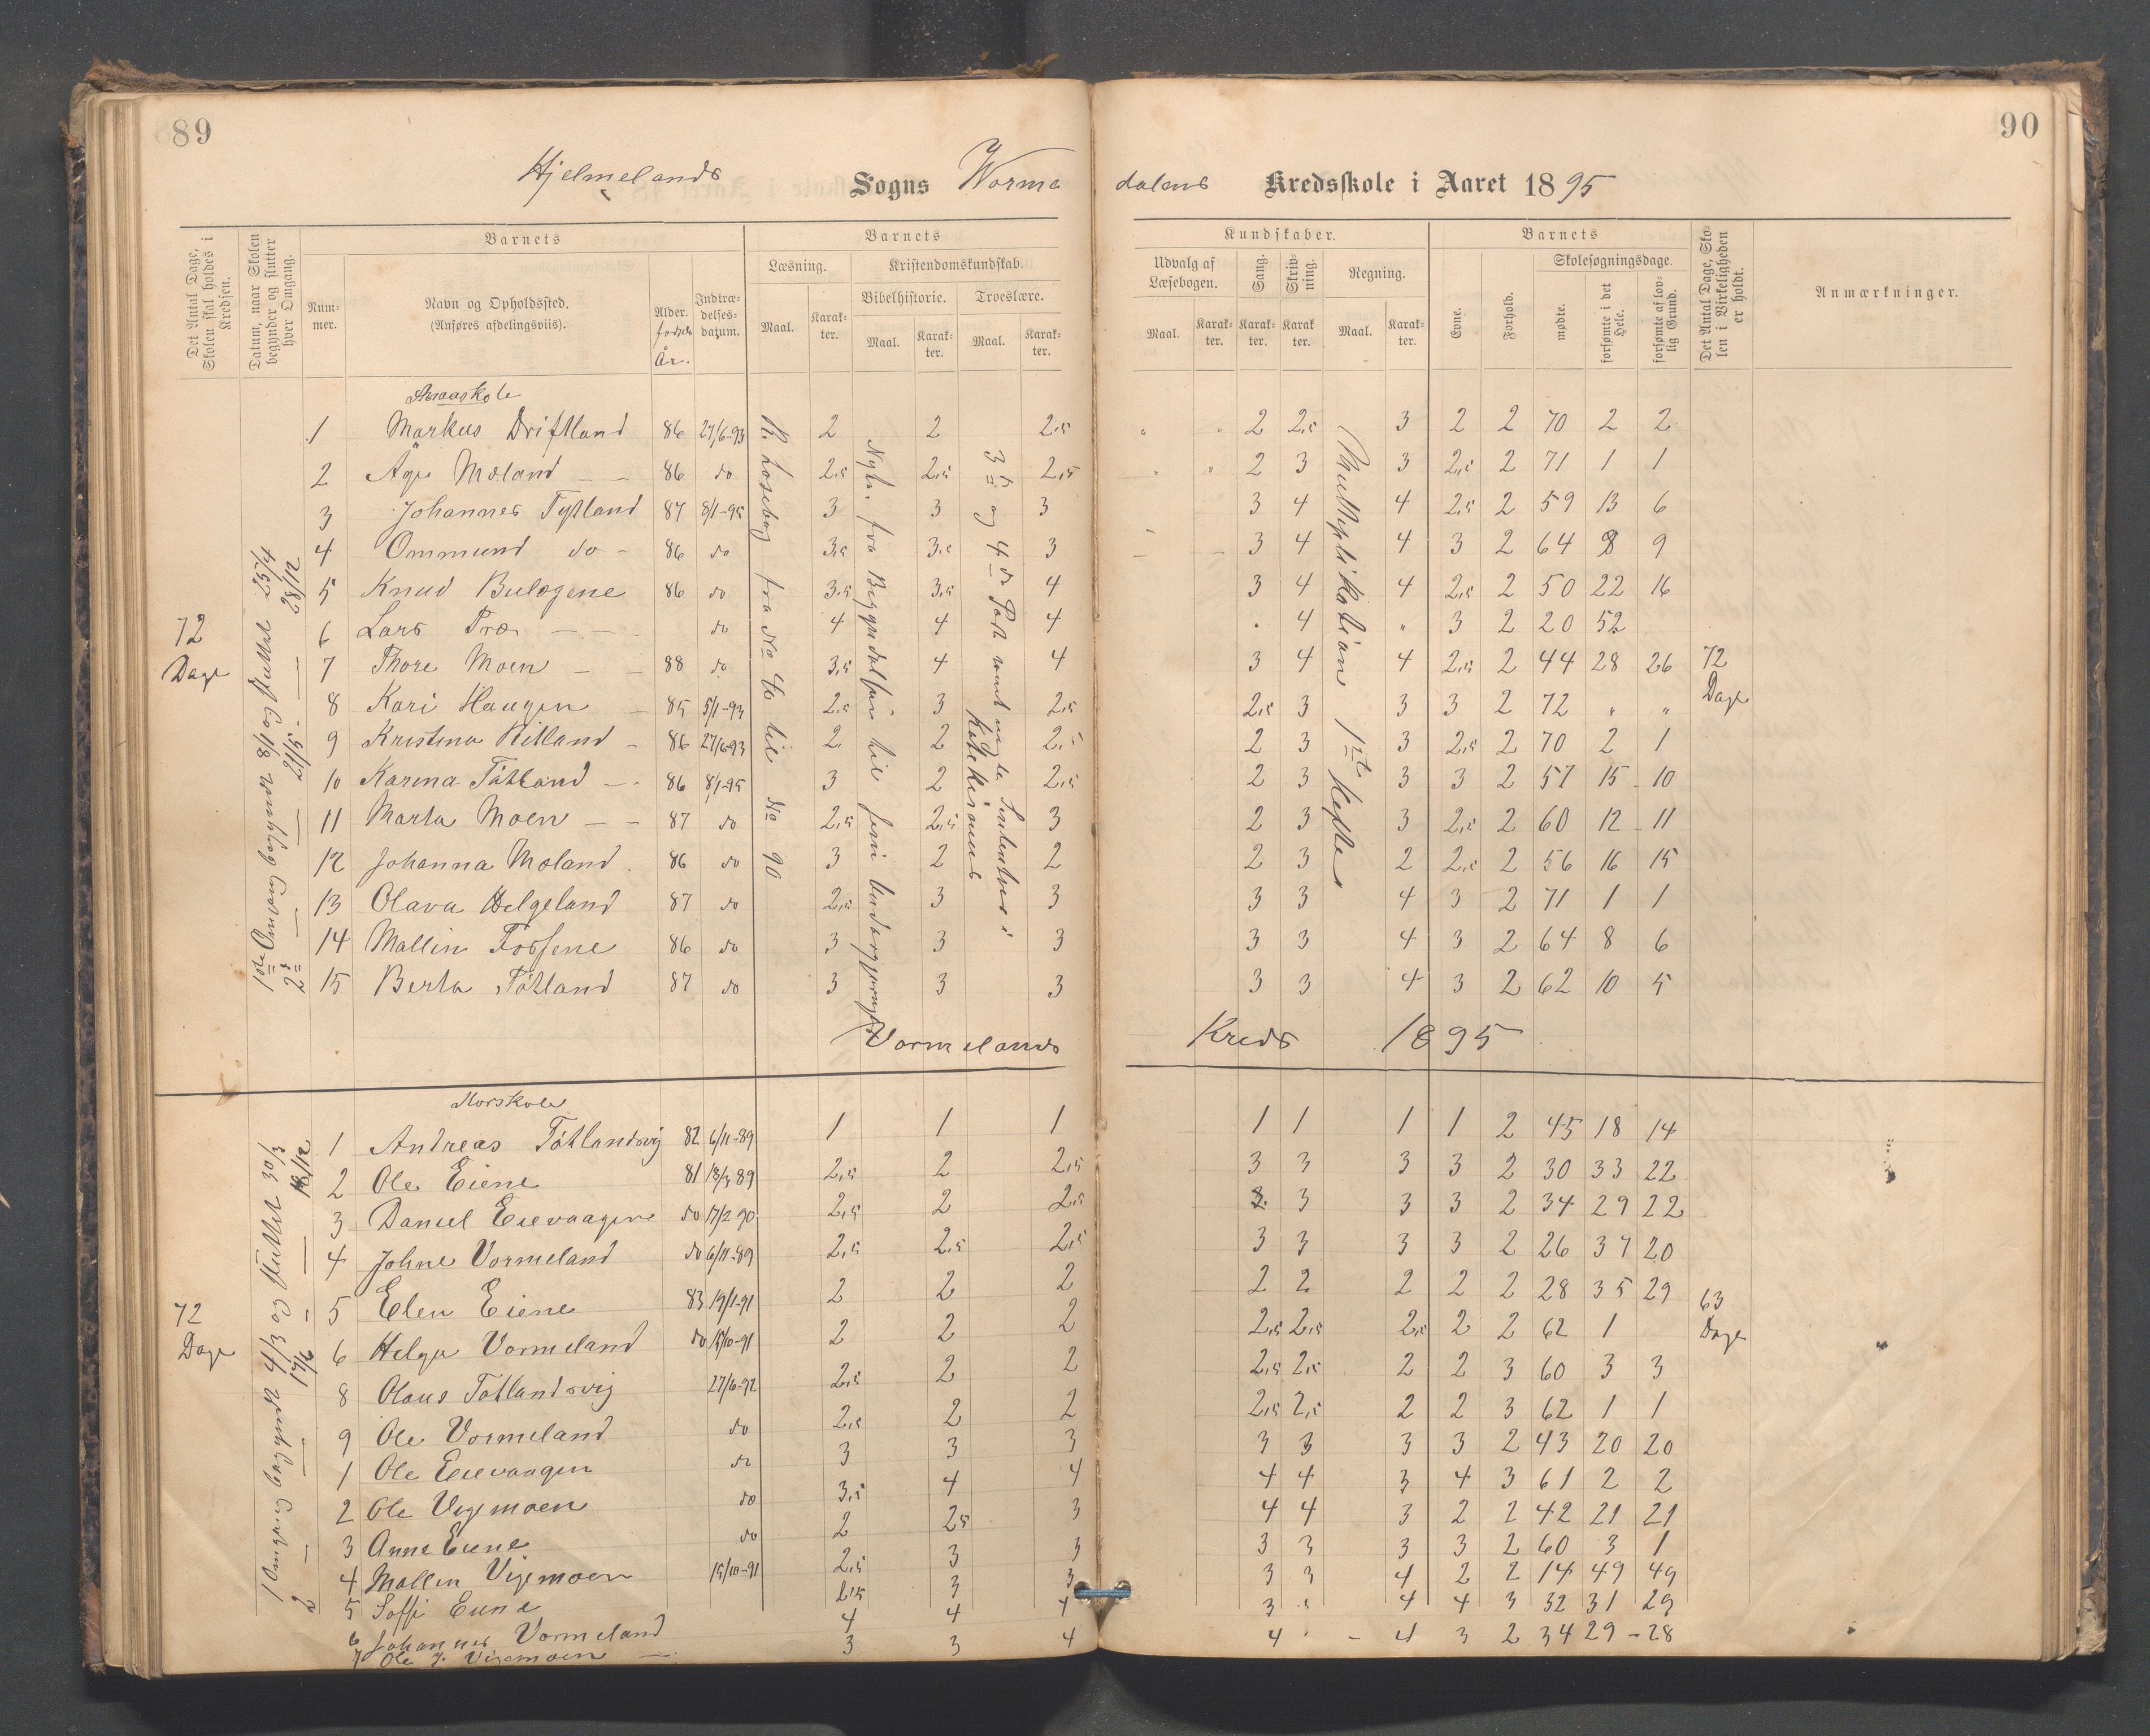 89
90
Hjelmelands Sogns Worme
dalens Kredsskole i Aaret 1895
Det Antal Dage, Skolen skal holdes i Kredsen.
Datum, naar Skolen begynder og slutter hver Omgang.
Barnets
Num-mer.
Navn og Opholdssted.
(Anføres afdelingsviis).
Alder. fødsels År.
Indtræ-delses-datum.
Barnets
Læsning.
Maal.
Karak-ter.
Kristendomskundskab.
Bibelhistorie.
Maal.
Karak-ter.
Troeslære.
Maal.
Karak-ter.
Kundskaber.
Udvalg af Læsebogen.
Maal.
Karak-ter.
Sang.
Karak-ter.
Skriv-ning.
Karak ter.
Regning.
Maal.
Karak-ter.
Barnets
Evne.
Forhold.
Skolesøgningsdage.
mødte.
forsømte i det Hele.
forsømte af lov-lig Grund.
Det Antal Dage, Sko-len i Virkeligheden er holdt.
Anmærkninger.
Smaaskole
1 Markus Driftland 86 27/6-93 2 2 2,5 " " 2 2,5 3 2 2 70 2 2
2 Åge Mæland 86 do 2,5 2,5 2,5 " " 2 3 3 2,5 2 71 1 1
3 Johannes Tytland 87 8/1-95 3 3 3 3 4 4 2,5 2 59 13 6
4 Ommund do 86 do 3,5 3,5 3 3 4 4 3 2 64 8 9
5 Knud Bulægene 86 do 3,5 3,5 4 3 4 4 2,5 2 50 22 16
6 Lars Træ do 4 4 4 " 4 " 3 2 20 52
7 Thore Moen 88 do 3,5 4 4 3 4 4 2,5 2 44 28 26
8 Kari Haugen 85 5/1-93 2,5 3 2,5 2,5 3 3 3 2 72 " "
9 Kristina Ritland 86 27/6-93 2 2 2,5 2 3 3 2,5 2 70 2 1
10 Karina Tøtland 86 8/1-95 3 2 2,5 2 3 3 3 2 57 15 10
11 Marta Moen 87 do 2,5 2,5 3 2 3 3 2,5 2 60 12 11
12 Johanna Mæland 86 do 3 2 2 2 3 2 2,5 2 56 16 15
13 Olava Helgeland 87 do 2,5 3 3 3 3 4 3 2 71 1 1
14 Mallin Fossene 86 do 3 3 3 3 3 4 3 2 64 8 6
15 Berta Tøtland 87 do 3 3 3 3 3 4 3 2 62 10 5
72
Dage
1ste Omgang begyndt 8/1 og sluttet 25/4
2 — 21/5 — 28/12
R. Læsebog fra No 40 til No 90
3de og 4de Part samt uægte Sententser i
Katekismus
Multiplikation 1ste Hefte
72
Dage
Vormelands Kreds 1895
Storskole
1 Andreas Tøtlandsvig 82 6/11-89 1 1 1 1 1 1 1 2 45 18 14
2 Ole Eiene 81 18/3 89 2,5 2 2,5 3 3 3 3 2 30 33 22
3 Daniel Eievaagen do 17/2 90 2,5 2 2,5 3 3 3 3 2 34 29 22
4 Johne Vormeland do 6/11-89 2,5 2,5 2,5 3 3 3 3 2 26 37 20
5 Elen Eiene 83 19/1-91 2 2 2 2 2 2 2 2 28 35 29
6 Helge Vormeland do 15/10-91 2 2 2 2,5 2,5 2,5 2 2 62 1
8 Olaus Tøtlandsvig 27/6-92 2,5 2 2 2,5 2,5 2 2 3 60 3 3
9 Ole Vormeland do 2,5 2 2 2,5 2,5 2 2 3 62 1 1
1 Ole Eievaagen do 3 3 3 3 3 3 3 2 43 20 20
2 Ole Vigemoen do 3,5 4 4 4 4 3 4 3 61 2 2
3 Anne Eiene do 2 25 3 4 4 3 2 2 42 21 21
4 Mallin Vigemoen 15/10-91 2,5 3 3 3 3 3 3 2 60 3 1
5 Soffi Eiene 2,5 3 3 3 3 4 2 2 14 49 49
6 Johannes Vormeland 4 4 4 3 " 4 4 3 32 31 29
7 Ole J. Vigemoen 3 3 4 4 " 4 3 2 34 29 28
72
Dage
1 Omgang begyndt 4/3 og sluttet 30/3
2 — 17/6 — 18/12
63
Dage